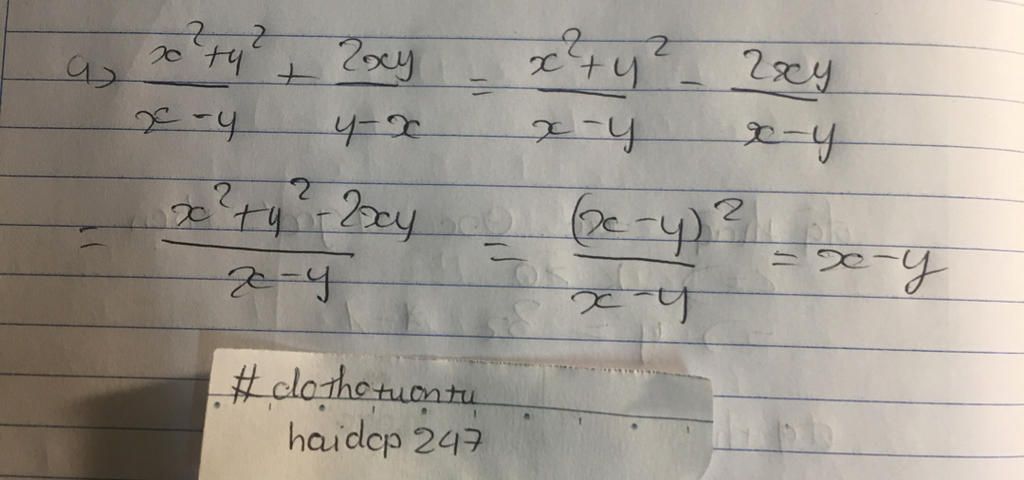 a) \frac{x^2+y^2}{x-y} + \frac{2xy}{y-x} = \frac{x^2+y^2}{x-y} - \frac{2xy}{x-y}
= \frac{x^2+y^2-2xy}{x-y} = \frac{(x-y)^2}{x-y} = x-y
# dothotuontu
haidcp 247